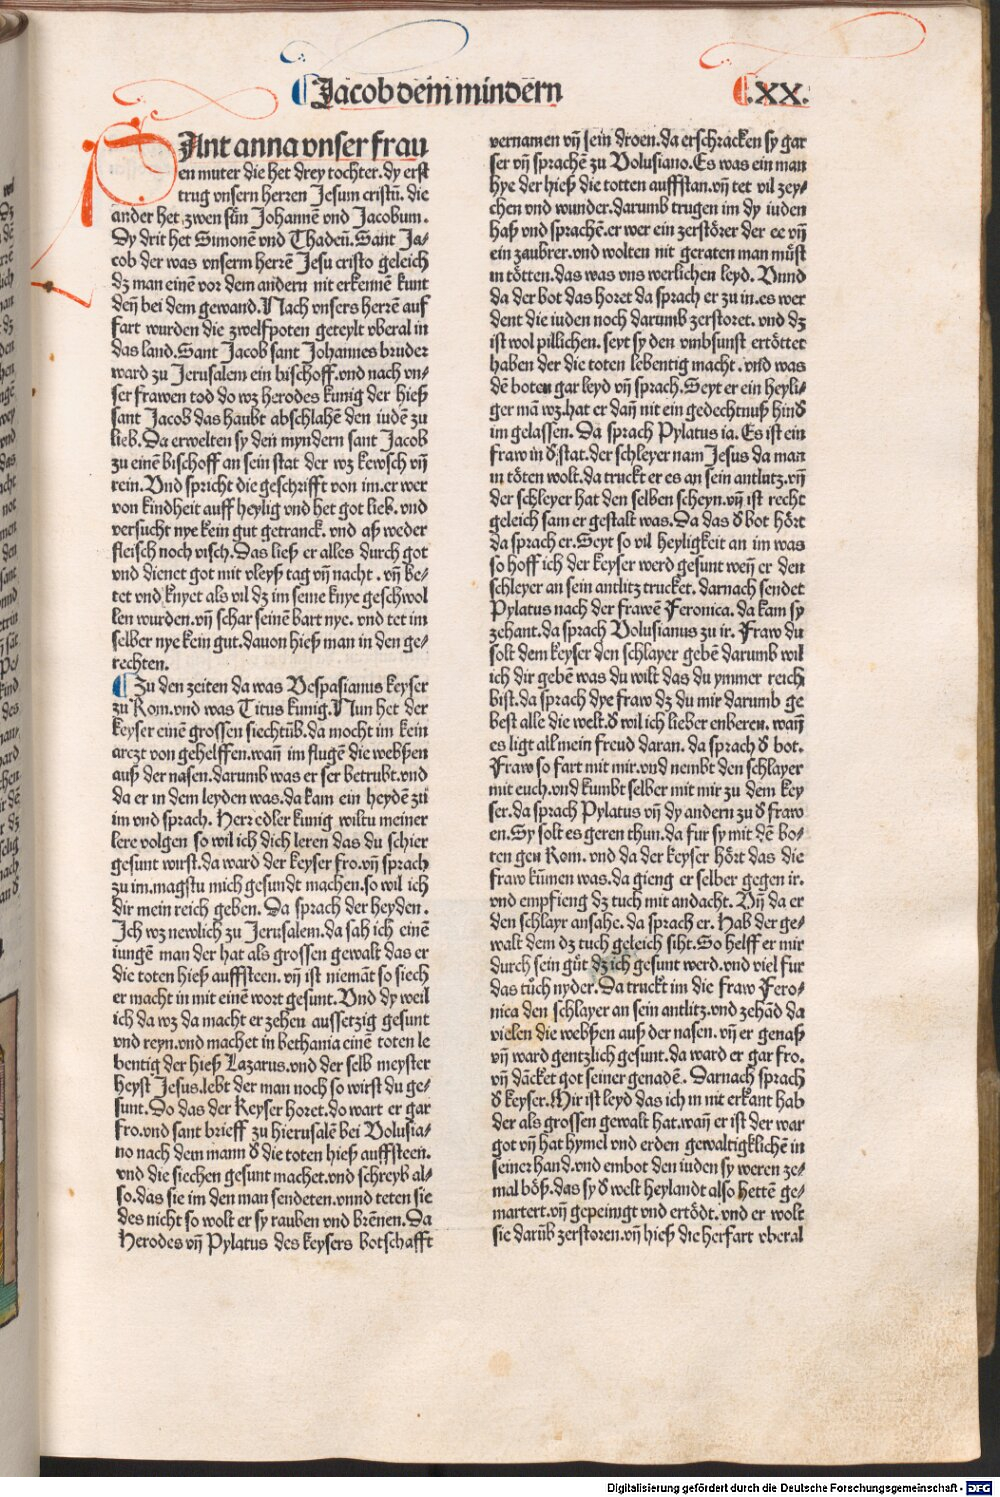 Jacob dem mindern
.XX.
SAnt anna vnser frau
en muter die het drey tochter. dy erst
trug vnsern herren Jesum cristū. die
ander het zwen sün Johannē vnd Jacobum.
Dy drit het Simonē vnd Thadeū. Sant Ja⸗
cob der was vnserm herrē Jesu cristo geleich
dz man einē vor dem andern nit erkennē kunt
deñ bei dem gewand. Nach vnsers herrē auf
fart wurden die zwelfpoten geteylt vberal in
das land. Sant Jacob sant Johannes bruder
ward zu Jerusalem ein bischoff. vnd nach vn⸗
ser frawen tod do wz herodes kunig der hieß
sant Jacob das haubt abschlahē den iudē zu
lieb. Da erwelten sy den myndern sant Jacob
zu einē bischoff an sein stat der wz kewsch vñ
rein. Vnd spricht die geschrifft von im. er wer
von kindheit auff heylig vnd het got lieb. vnd
versucht nye kein gut getranck. vnd aß weder
fleisch noch visch. Das ließ er alles durch got
vnd dienet got mit vleyß tag vñ nacht. vñ be⸗
tet vnd knyet als vil dz im seine knye geschwol
len wurden. vñ schar seinē bart nye. vnd tet im
selber nye kein gut. dauon hieß man in den ge⸗
rechten.
Zu den zeiten da was Vespasianus keyser
zu Rom. vnd was Titus kunig. Nun het der
keyser einē grossen siechtūb. da mocht im kein
arczt von gehelffen. wañ im flugē die webßen
auß der nasen. darumb was er ser betrubt. vnd
da er in dem leyden was. da kam ein heydē zů
im vnd sprach. Herr edler kunig wiltu meiner
lere volgen so wil ich dich leren das du schier
gesunt wirst. da ward der keyser fro. vñ sprach
zu im. magstu mich gesundt machen. so wil ich
dir mein reich geben. Da sprach der heyden.
Ich wz newlich zu Jerusalem. da sah ich einē
iungē man der hat als grossen gewalt das er
die toten hieß auffsteen. vñ ist niemāt so siech
er macht in mit einē wort gesunt. Vnd dy weil
ich da wz da macht er zehen aussetzig gesunt
vnd reyn. vnd machet in bethania einē toten le
bentig der hieß Lazarus. vnd der selb meyster
heyst Jesus. lebt der man noch so wirst du ge⸗
sunt. Do das der Keyser horet. do wart er gar
fro. vnd sant brieff zu hierusalē bei Volusia⸗
no nach dem mann ď die toten hieß auffsteen.
vnd die siechen gesunt machet. vnd schreyb al⸗
so. das sie im den man sendeten. vnnd teten sie
des nicht so wolt er sy rauben vnd brēnen. Da
Herodes vñ Pylatus des keysers botschafft
vernamen vñ sein droen. da erschracken sy gar
ser vñ sprachē zu Volusiano. Es was ein man
hye der hieß die totten auffstan. vñ tet vil zey⸗
chen vnd wunder. darumb trugen im dy iuden
haß vnd sprachē. er wer ein zerstörer der ee vñ
ein zaubrer. vnd wolten nit geraten man müst
in tötten. das was vns werlichen leyd. Vnnd
da der bot das horet da sprach er zu in. es wer
dent die iuden noch darumb zerstoret. vnd dz
ist wol pillichen. seyt sy den vmbsunst ertöttet
haben der die toten lebentig macht. vnd was
dē boten gar leyd vñ sprach. Seyt er ein heyli⸗
ger mā wz. hat er dañ nit ein gedechtnuß hinď
im gelassen. Da sprach Pylatus ia. Es ist ein
fraw in ď stat. der schleyer nam Jesus da man
in töten wolt. da truckt er es an sein antlutz. vñ
der schleyer hat den selben scheyn. vñ ist recht
geleich sam er gestalt was. Da das ď bot hört
da sprach er. Seyt so vil heyligkeit an im was
so hoff ich der keyser werd gesunt weñ er den
schleyer an sein antlitz trucket. darnach sendet
Pylatus nach der frawē Feronica. da kam sy
zehant. da sprach Volusianus zu ir. Fraw du
solt dem keyser den schlayer gebē darumb wil
ich dir gebē was du wilt das du ymmer reich
bist. da sprach dye fraw dz du mir darumb ge
best alle die welt. ď wil ich lieber enberen. wañ
es ligt all mein freud daran. da sprach ď bot.
Fraw so fart mit mir. vnd nembt den schlayer
mit euch. vnd kumbt selber mit mir zu dem key
ser. da sprach Pylatus vñ dy andern zu ď fraw
en. Sy solt es geren thun. da fur sy mit dē bo⸗
ten gen Rom. vnd da der keyser hört das die
fraw kūmen was. da gieng er selber gegen ir.
vnd empfieng dz tuch mit andacht. Vñ da er
den schlayr ansahe. da sprach er. Hab der ge⸗
walt dem dz tuch geleich siht. So helff er mir
durch sein güt dz ich gesunt werd. vnd viel fur
das tůch nyder. Da truckt im die fraw Fero⸗
nica den schlayer an sein antlitz. vnd zehād da
vielen die webßen auß der nasen. vñ er genaß
vñ ward gentzlich gesunt. da ward er gar fro.
vñ dācket got seiner genadē. Darnach sprach
ď keyser. Mir ist leyd das ich in nit erkant hab
der als grossen gewalt hat. wañ er ist der war
got vñ hat hymel vnd erden gewaltigklichē in
seiner hand. vnd embot den iuden sy weren ze⸗
mal böß. das sy ď welt heylandt also hettē ge⸗
martert. vñ gepeinigt vnd ertödt. vnd er wolt
sie darūb zerstoren. vñ hieß die herfart vberal
Digitalisierung gefördert durch die Deutsche Forschungsgemeinschaft - DFG